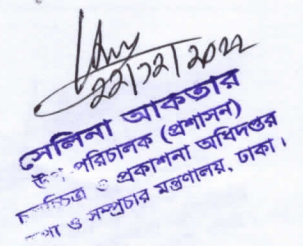 ২২/১২/২০২২
সেলিনা আকতার
উপ পরিচালক (প্রশাসন)
চলচ্চিত্র ও প্রকাশনা অধিদপ্তর
তথ্য ও সম্প্রচার মন্ত্রণালয়, ঢাকা।